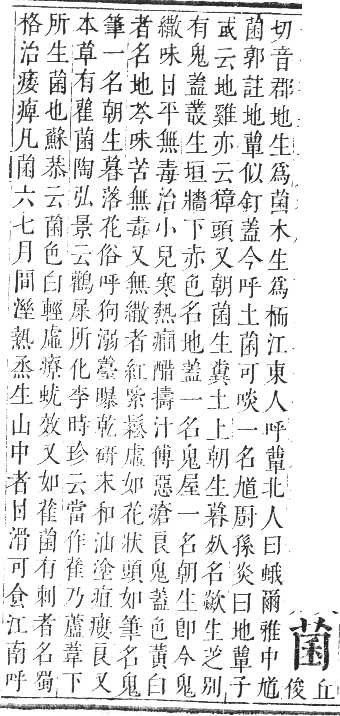 菌丘俊
切音郡地生為菌木生為栭江東人呼蕈北人曰蛾爾雅中馗
菌郭註地蕈似釘蓋今呼土菌可啖一名馗廚孫炎曰地蕈子
或云地雞亦云獐頭又朝菌生糞土上朝生暮死名歘生芝別
有鬼蓋叢生垣牆下赤色名地蓋一名鬼屋一名朝生卽今鬼
繖味甘平無毒治小兒寒熱癎醋擣汁傅惡瘡良鬼蓋色黃白
者名地芩味苦無毒又無繖者紅紫鬆虛如花狀頭如筆名鬼
筆一名朝生暮落花俗呼狗溺薹曝乾研末和油塗疽瘻良又
本草有雚菌陶弘景云鸛屎所化李時珍云當作萑乃蘆葦下
所生菌也蘇恭云菌色白輕虛療蚘效又如萑菌有刺者名蜀
格治痿痺凡菌六七月間溼熱烝生山中者甘滑可食江南呼